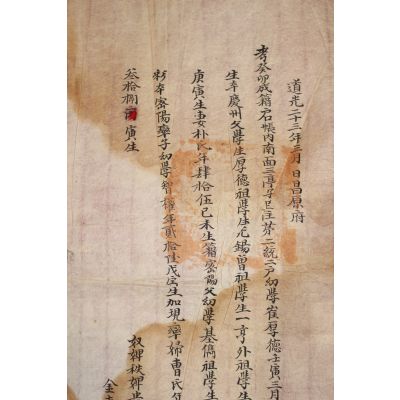 道光二十三年三月 日昌原府
考癸卯成籍戶帳內南面三亭子里住第二統二戶幼學崔厚德壬寅三月
生本慶州父學生厚德祖學生元錫曾祖學生一亨外祖學生
庚寅生妻朴氏年肆拾伍己未生籍密陽父幼學基儁祖學生
朴本密陽率子幼學智權年貳拾陸戊寅生加現率婦曹氏年
叁拾捌 寅生
奴婢秩婢